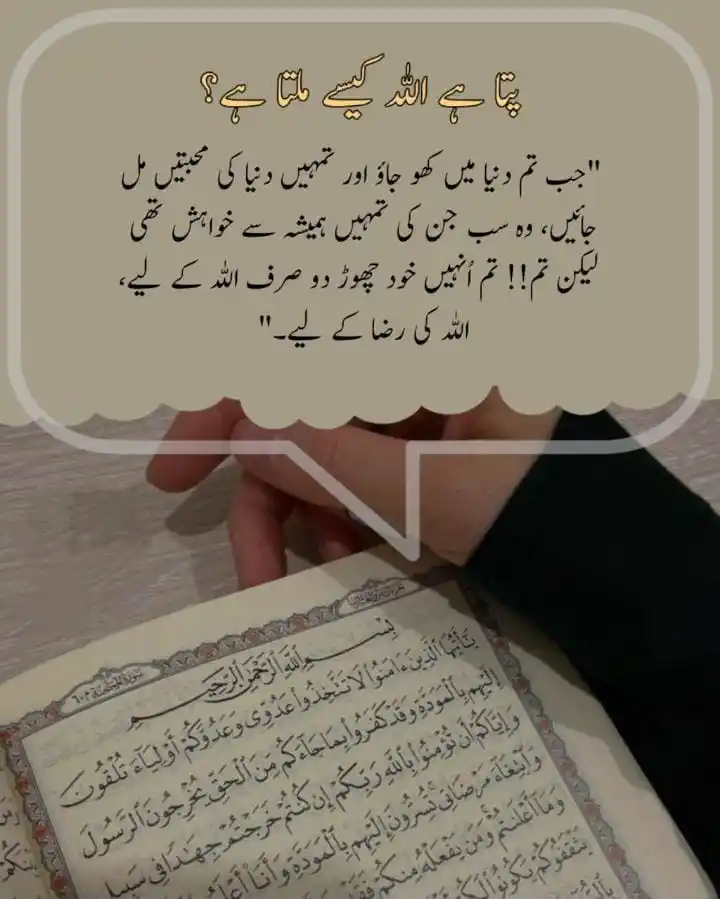 پتا ہے اللہ کیسے ملتا ہے؟
"جب تم دنیا میں کھو جاؤ اور تمہیں دنیا کی محبتیں مل
جائیں، وہ سب جن کی تمہیں ہمیشہ سے خواہش تھی
لیکن تم!! تم اُنہیں خود چھوڑ دو صرف اللہ کے لیے،
اللہ کی رضا کے لیے۔"
بِسْمِ اللَّهِ الرَّحْمَٰنِ الرَّحِيمِ
يَٰٓأَيُّهَا ٱلَّذِينَ ءَامَنُوا۟ لَا تَتَّخِذُوا۟ عَدُوِّى وَعَدُوَّكُمْ أَوْلِيَآءَ تُلْقُونَ
إِلَيْهِم بِٱلْمَوَدَّةِ وَقَدْ كَفَرُوا۟ بِمَا جَآءَكُم مِّنَ ٱلْحَقِّ يُخْرِجُونَ ٱلرَّسُولَ
وَإِيَّاكُمْ أَن تُؤْمِنُوا۟ بِٱللَّهِ رَبِّكُمْ إِن كُنتُمْ خَرَجْتُمْ جِهَٰدًا فِى سَبِيلِ
وَٱبْتِغَآءَ مَرْضَاتِى تُسِرُّونَ إِلَيْهِم بِٱلْمَوَدَّةِ وَأَنَا۠
وَمَآ أَعْلَنتُمْ وَمَن يَفْعَلْهُ مِنكُمْ فَقَدْ
يَثْقَفُوكُمْ يَكُونُوا۟ لَكُمْ